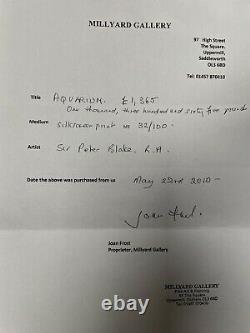 MILLYARD GALLERY
97 High Street
The Square,
Uppermill,
Saddleworth
OL3 6BD
Tel: 01457 870410
Title AQUARIUM. £1,365
One thousand, three hundred and sixty five pounds
Medium silkscreen print no 32/100 -
Artist Sir Peter Blake, R.A.
Date the above was purchased from us May 22nd 2010 -
Joan Frost
Proprietor, Millyard Gallery
MILLYARD GALLERY
Fine Art & Framing
97 The Square
Uppermill, Oldham OL3 6BD
Tel: 01457 870410